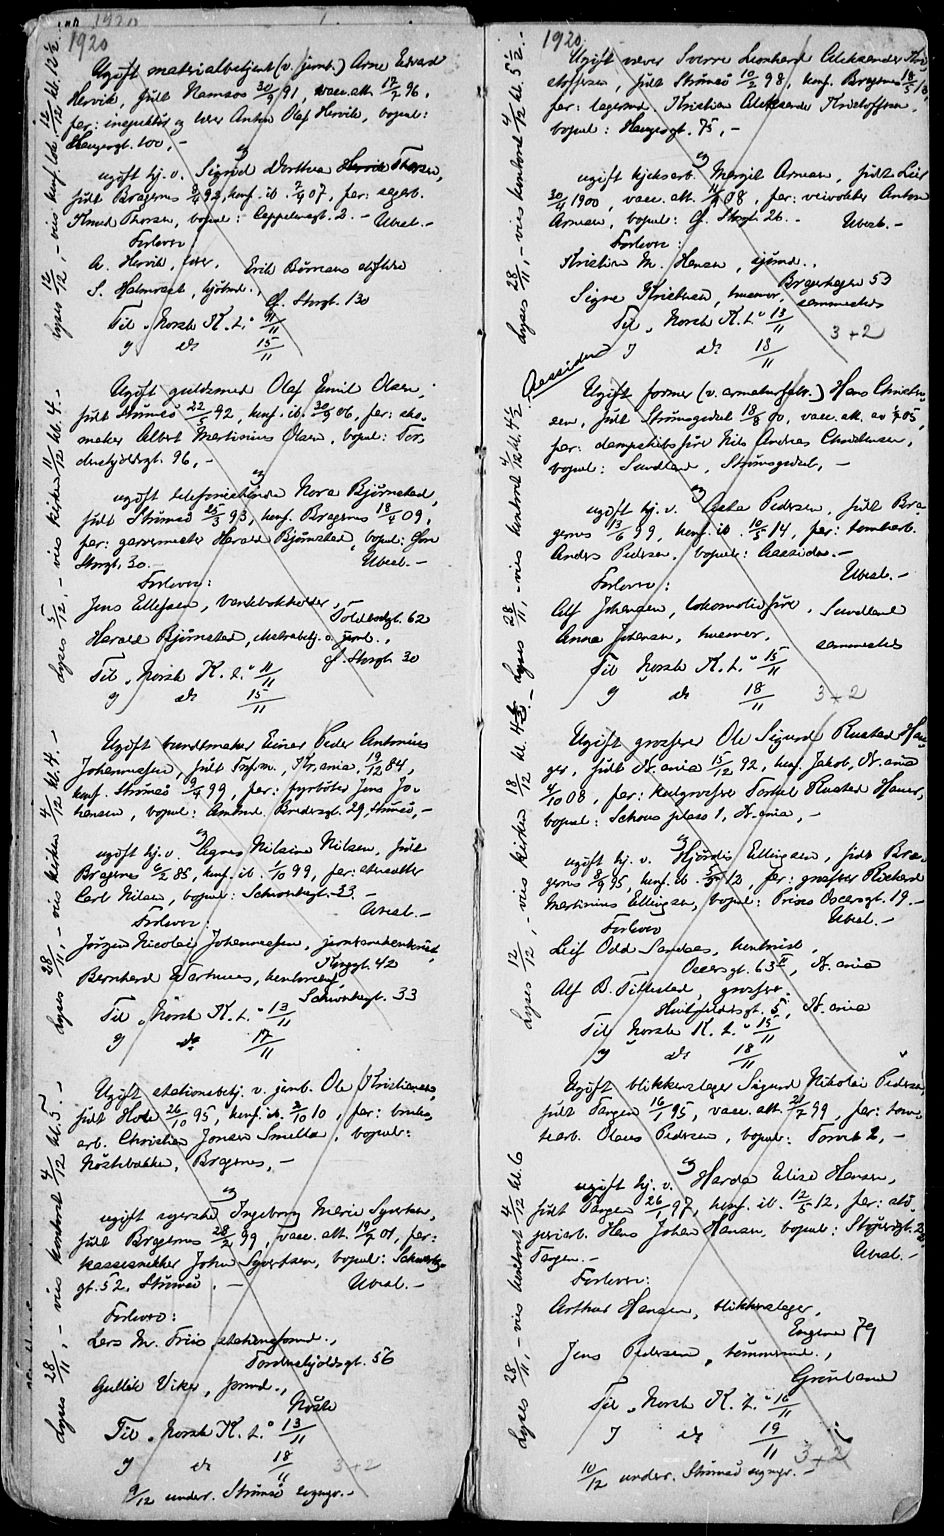 1920
Ugift materialbetjent (v. jernb.) Arne Edvard
Hervik, født Namsos 30/9 91, vacc. att. 17/7 96,
far: inspektör og lærer Anton Olaf Hervik, bopæl:
Haugesgt. 100, -
og
ugift hj. v. Sigrid Dorthea Thorsen,
født Bragernes 92, konf. ib. 07, far: sagarb.
Knud Thorsen, bopæl: Cappelensgt. 2. - Ubesl. -
Forlover
A. Hervik, lærer, Erik Börresens stiftelse
S. Halmrast, kjöbmd., Gl. Storgt. 130
Til „Norsk K. L." 9/11
g ds 15/11
Lyses 12/12, - vies
Ugift guldsmed Olaf Emil Olsen,
født Strømsö 22/5 92, konf. ib. 30/9 06, far: sko-
maker Albert Martinius Olsen, bopæl: Tor
denskjoldsgt. 96, -
og
ugift telefonistinde Nora Bjørnstad,
født Strømsö 25/3 93, konf. Bragernes 18/4 09,
far: garvermester Harald Bjørnstad, bopæl: Øvre
Storgt. 30. Ubesl. -
Forlover:
Jens Ellefsen, bankbokholder, Toldbodgt. 62
Harald Bjørnstad, jernb.,
Gl. Storgt. 30
Til „Norsk K. L." 11/11
g ds 15/11
Lyses 5/12, - vies kirken 11/12 kl. 4. -
Ugift bundtmaker Einar Peder Antonius
Johannessen, født Kr.ania 19/12 84,
konf. Strømsö 9/4 99, far: fyrböter Jens Jo-
hansen, bopæl: Amtmd. Bredesgt. 29, Strømsö, -
og
ugift hj. v. Agnes Nilsine Nilsen, født
Bragernes 6/2 85, konf. ib. 1/10 99, far:
Carl Nilsen, bopæl: Schwenckegt. 33.
Ubesl. -
Forlover:
Jørgen Nicolai Johannessen,
Kongegt. 42
Bernhard
Schwenckegt. 33
Til „Norsk K. L." 13/11
g ds 17/11
Lyses 28/11, - vies kirken 4/12 kl. 4. -
Ugift stationsbetj. v. jernb. Ole Kristiansen,
født Hole 26/10 95, konf. ib. 2/10 10, far: bruks-
arb. Christian Jonsen Smette, bopæl:
Nöstebakken, Bragernes, -
og
ugift syerske Ingeborg Marie Syvertsen,
født Bragernes 28/2 99, vacc. att. 19/7 01, far:
kassesnekker John Syvertsen, bopæl: Schwartz-
gt. 52, Strømsö. - Ubesl. -
Forlover:
Lars M. Friis, stationsformd.,
Tordenskjoldsgt. 56
Gullik Viker, formd.,
Nöste
Til „Norsk K. L." 13/11
g ds 18/11
3+2
9/12 underr. Strømsö sogngr. -
Lyses 28/11, - vies kontoret 4/12 kl. 5. -
1920.
Ugift væver Sverre Leonhard Aleksander Kri
stoffersen, født Strømsö 10/2 98, konf. Bragernes 18/5 13,
far: lagermd. Kristian Aleksander Kristoffersen,
bopæl: Haugesgt. 75, -
og
ugift kjeksarb. Margit Arnesen, født Lier
30/4 1900, vacc. att. 08, far: veivokter Anton
Arnesen, bopæl: Gl. Storgt. 26. - Ubesl. -
Forlover:
Kristian M. Hansen, sjømd.,
Bragerhagen 53
Signe Kristensen, husmor, sammesteds
Til „Norsk K. L." 13/11
3+2
g ds 18/11
Lyses 28/11, - vies kontoret 4/12 kl. 5 1/2. -
Aassiden
Ugift former (v. armaturfabr.) Hans Christen-
sen, født Strømsgodset 18/8 00, vacc. att. av 05,
far: dampskibsfører Nils Andreas Christensen,
bopæl: Sundland, Strømsgodset, -
og
ugift hj. v. Aasta Pedersen, født Bra
gernes 13/6 99, konf. ib. 10/5 14, far: tomtearb.
Anders Pedersen, bopæl: Aassiden. -
Ubesl. -
Forlover:
Alf Johansen, lokomotivfører, Sundland
Anna Johansen, husmor, sammesteds
Til „Norsk K. L." 15/11
g ds 18/11
3+2
Lyses 28/11, - vies kontoret 4/12 kl. 4 1/2 -
Ugift grosserer Ole Sigurd Rustad Hau-
ger, født Kr.ania 15/12 92, konf. Jakob, Kr.ania
4/10 08, far: kulgrosserer Torkel Rustad Hauger,
bopæl: Schous plass 1, Kr.ania, -
og
ugift hj. v. Hjørdis Ellingsen, født Bra-
gernes 8/9 95, konf. ib. 12, far: grosserer Richard
Martinius Ellingsen, bopæl: Prins Oscarsgt. 19. -
Ubesl. -
Forlover
Leif Odd Sandaas, kontorist,
Oscarsgt. 63 II, Kr.ania
Alf B. Tillestad, grosserer,
Huitfeldtsgt. 5, Kr.ania
Til „Norsk K. L." 15/11
g ds 18/11
Lyses 12/12, - vies kirken 18/12 kl. 4
Ugift blikkenslager Sigurd Nikolai Pedersen,
født Tangen 16/1 95, vacc. att. 21/7 99, far: tom-
tearb. Olaus Pedersen, bopæl: Tomt 2, -
og
ugift hj. v. Harda Elise Hansen,
født Tangen 26/1 97, konf. ib. 12/5 12, far:
Hans Johan Hansen, bopæl:
Tangen. - Ubesl. -
Forlover:
Arthur Hansen, blikkenslager,
Engene 79
Jens Pedersen, tømmermd.,
Grönland
Til „Norsk K. L." 16/11
g ds 19/11
3+2
10/12 underr. Strømsö sogngr. -
Lyses 28/11, - vies kontoret 4/12 kl. 6